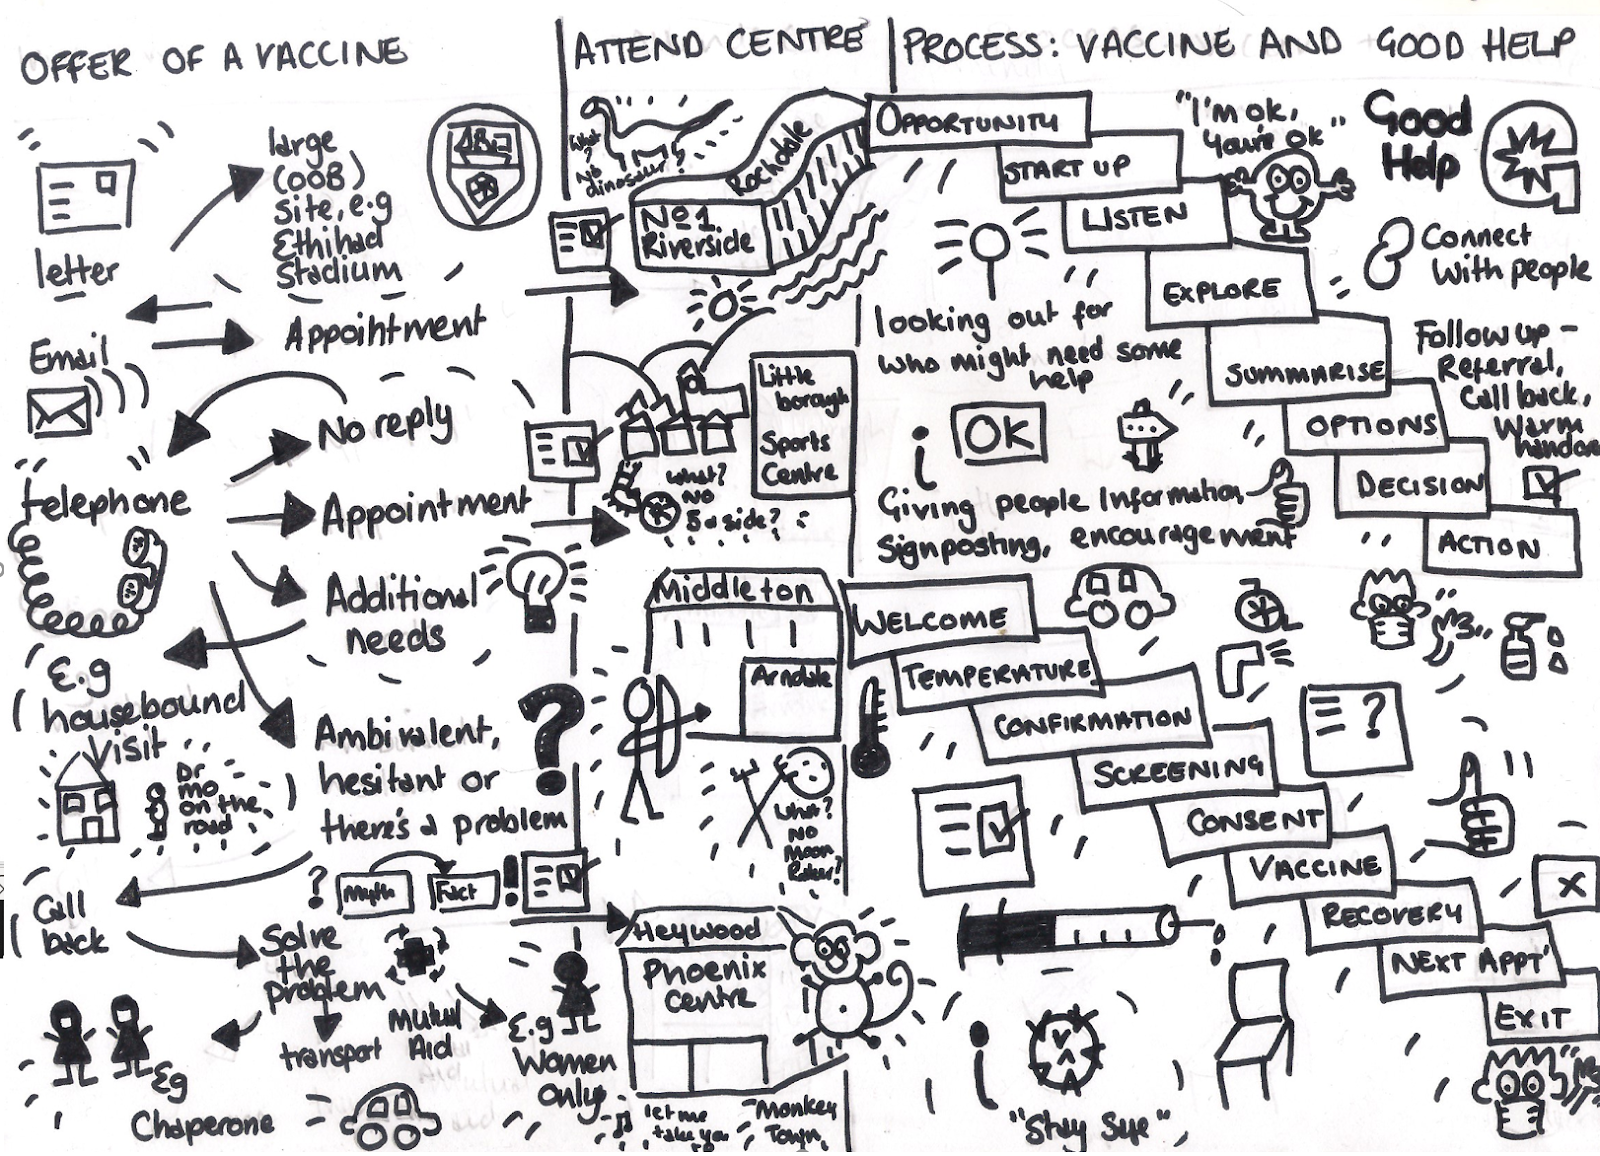 OFFER OF A VACCINE
letter
large
(OOB)
site, e.g
Ethihad
Stadium
Appointment
Email
No reply
telephone
Appointment
Additional
needs
E.g
housebound
visit
Dr
mo
on the
road
Ambivalent,
hesitant or
there's a problem
?
Myth
Fact
!
Call
back
Solve
the
problem
transport
Mutual
Aid
E.g
Women
Only
Eg
Chaperone
ATTEND CENTRE
What
?
No
dinosaur?
Rochdale
No1.
Riverside
Little
borough
Sports
Centre
What?
NO
5 a side?
Middleton
Arndale
What?
NO
Moon
Raker?
Heywood
Phoenix
Centre
let me
take you
to
Monkey
Town
PROCESS: VACCINE AND GOOD HELP
OPPORTUNITY
START UP
LISTEN
EXPLORE
SUMMARISE
OPTIONS
DECISION
ACTION
"I'm ok,
you're ok"
Good
Help
Connect
with people
Follow up -
Referral,
Call back,
Warm
looking out for
who might need some
help
i
OK
Giving people information,
signposting, encouragement
WELCOME
TEMPERATURE
CONFIRMATION
SCREENING
CONSENT
VACCINE
RECOVERY
NEXT APPT'
EXIT
?
X
i
"Stay Sye"